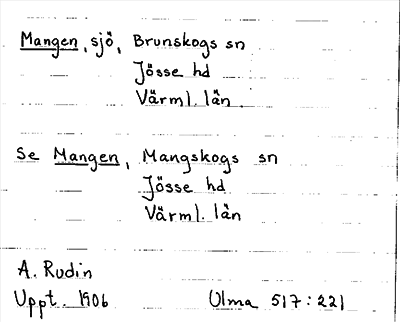 Mangen, sjö, Brunskogs sn
Jösse hd
Värml. län
Se Mangen, Mangskogs sn
Jösse hd
Värml. län
A. Rudin
Uppt. 1906 Ulma 517:221